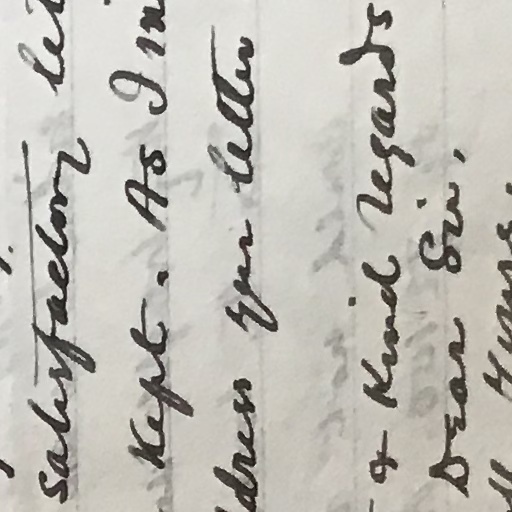 satisfactory let
Kept. As I in
ddress your letter
& Kind regards
Dear Sir,
Yours.